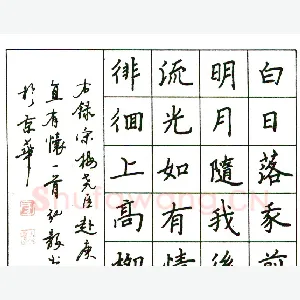 白日落我前
明月隨我後
流光如有情
徘徊上高柳
右錄宋梅堯臣赴庚
直有懷一首
於京華
Shufawang.CN